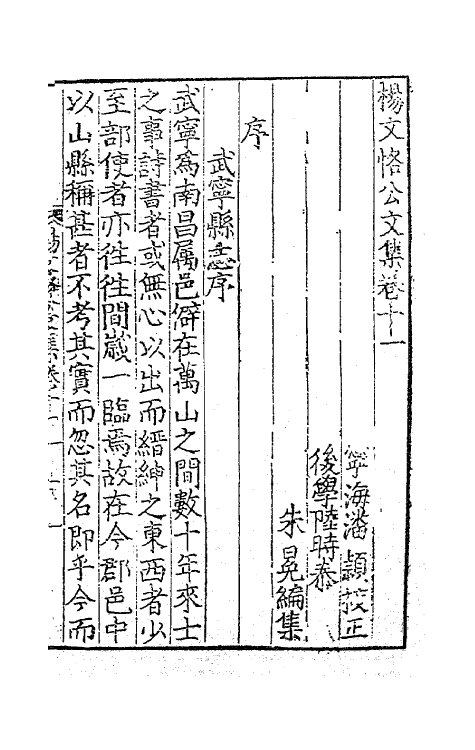 楊文恪公文集卷十一
寧海潘 頴挍正
後學陸時泰
朱晃編集
序
武寧縣志序
武寧爲南昌属邑僻在萬山之間數十年來士
之事詩書者或無心以出而縉紳之東西者少
至部使者亦徃徃間歲一臨焉故在今郡邑中
以山縣稱甚者不考其實而忽其名即乎今而